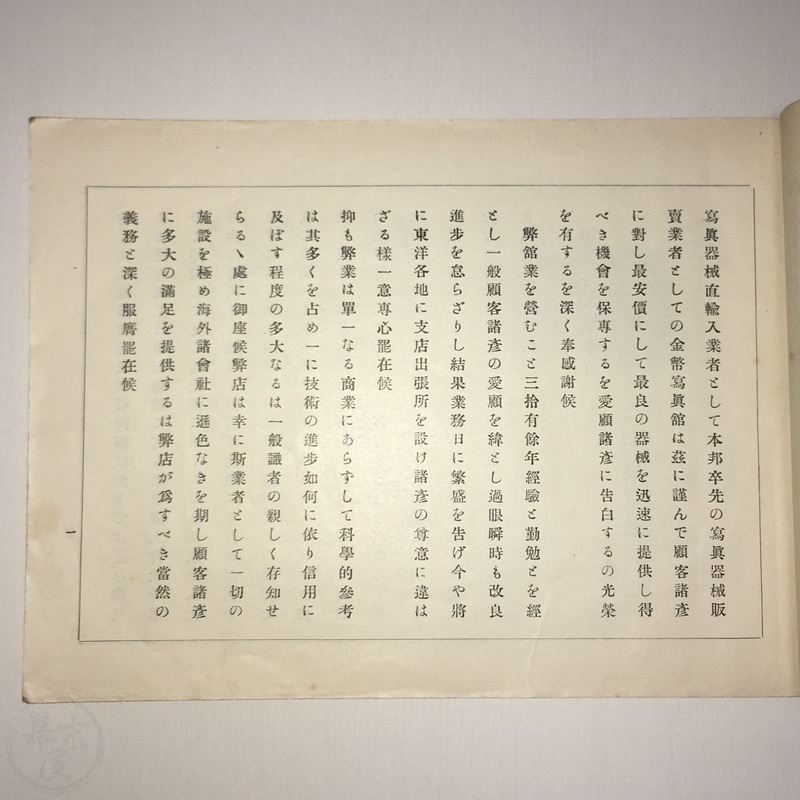 寫眞器械直輸入業者として本邦卒先の寫眞器械販
賣業者としての金幣寫眞舘は茲に謹んで顧客諸彥
に對し最安價にして最良の器械を迅速に提供し得
べき機會を保專するを愛顧諸彥に告白するの光榮
を有するを深く奉感謝候
弊舘業を營むこと三拾有餘年經驗と勤勉とを經
とし一般顧客諸彥の愛顧を緯とし過眼瞬時も改良
進步を怠らざりし結果業務日に繁盛を吿げ今や將
に東洋各地に支店出張所を設け諸彥の尊意に違は
ざる樣一意專心罷在候
抑も弊業は單一なる商業にあらずして科學的參考
は其多くを占め一に技術の進步如何に依り信用に
及ぼす程度の多大なるは一般識者の親しく存知せ
らるゝ處に御座候弊店は幸に斯業者として一切の
施設を極め海外諸會社に遜色なきを期し顧客諸彥
に多大の滿足を提供するは弊店が爲すべき當然の
義務と深く服膺罷在候
一
幕末屋